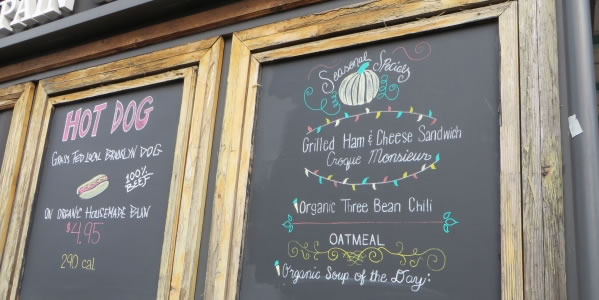 PAIN
HOT DOG
GRASS FED LOCAL BROOKLYN DOG
100%
BEEF
ON ORGANIC HOUSEMADE BUN
$4.95
290 cal
Seasonal Specials
Grilled Ham & Cheese Sandwich
Croque Monsieur
Organic Three Bean Chili
OATMEAL
Organic Soup of the Day: